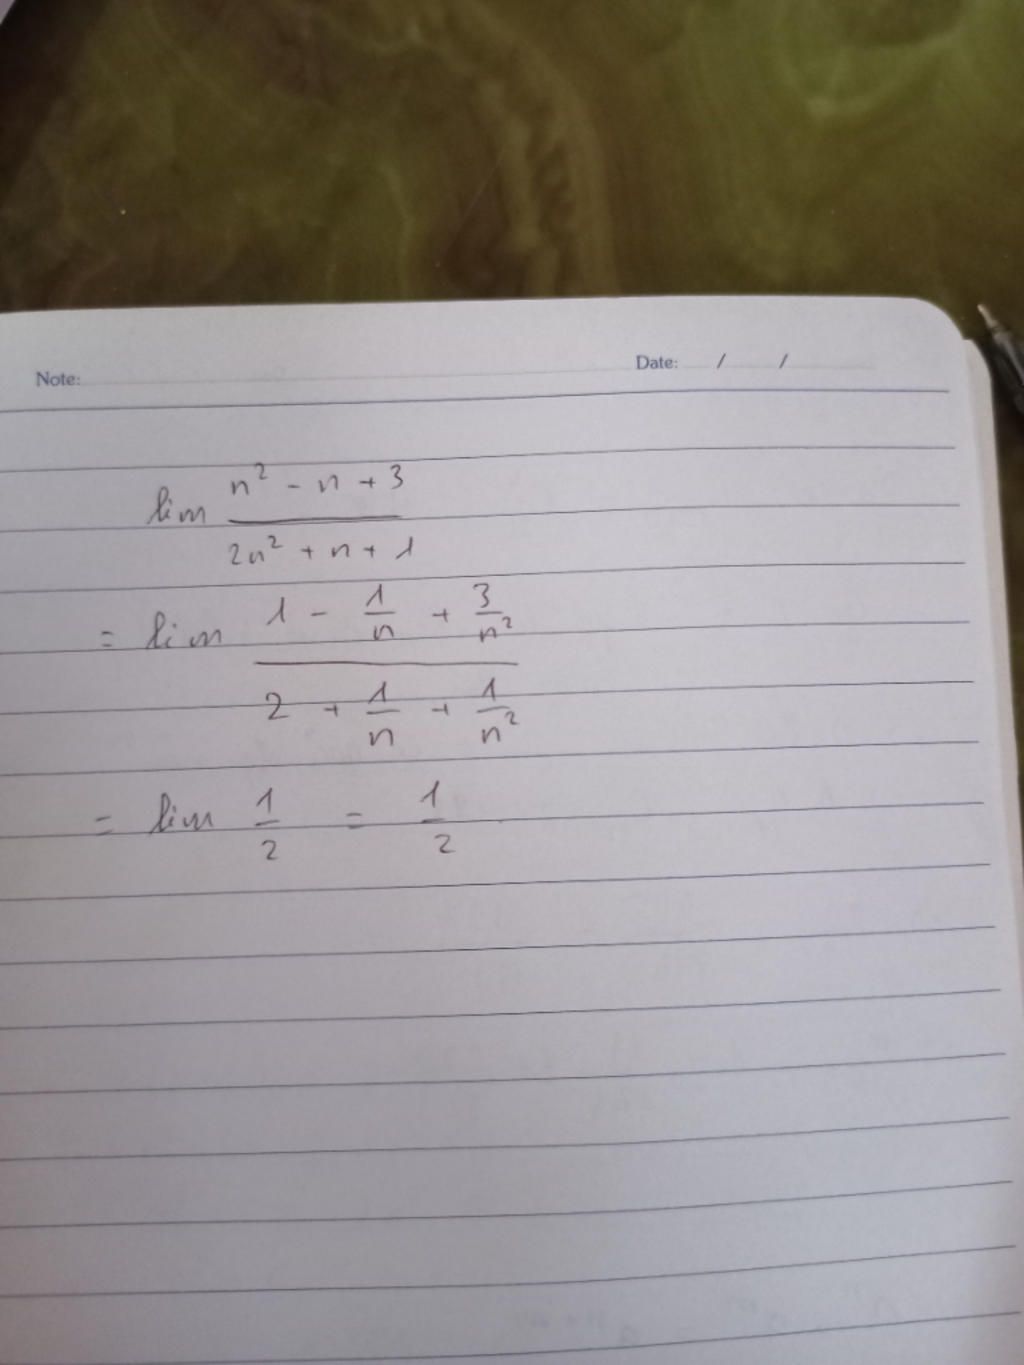 Note: Date: / /
lim \frac{n^2 - n + 3}{2n^2 + n + 1}
= lim \frac{1 - \frac{1}{n} + \frac{3}{n^2}}{2 + \frac{1}{n} + \frac{1}{n^2}}
= lim \frac{1}{2} = \frac{1}{2}